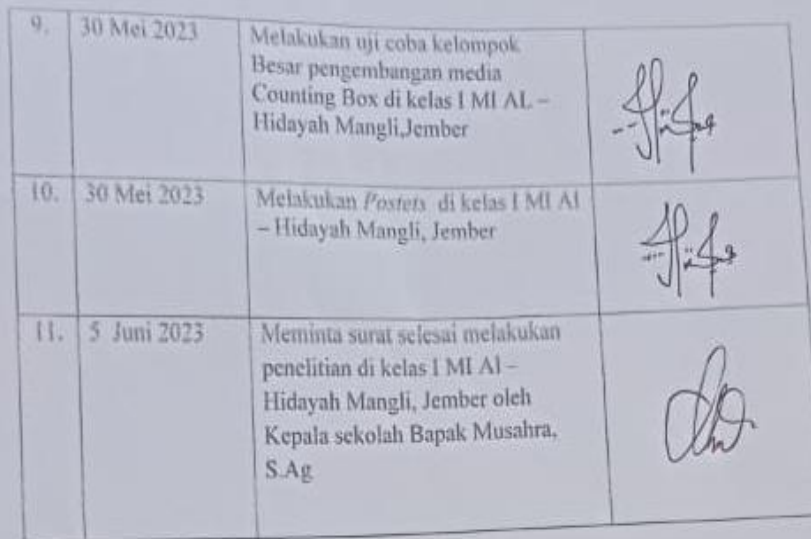 9. 30 Mei 2023 Melakukan uji coba kelompok
Besar pengembangan media
Counting Box di kelas I MI AL –
Hidayah Mangli,Jember
10. 30 Mei 2023 Melakukan Postets di kelas I MI Al
– Hidayah Mangli, Jember
11. 5 Juni 2023 Meminta surat selesai melakukan
penelitian di kelas I MI Al –
Hidayah Mangli, Jember oleh
Kepala sekolah Bapak Musahra,
S.Ag